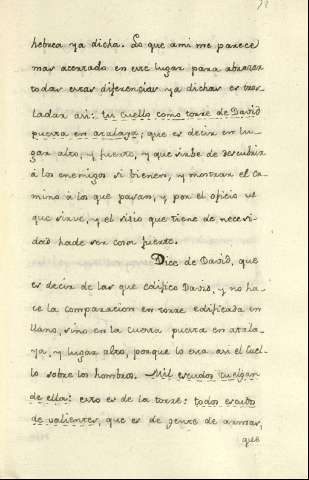 hebrea ya dicha. Lo que ami me parece
mas acertado en este lugar para abrazar
todas estas diferencias ya dichas es tras
ladar asi: tu cuello como torre de David
puesta en atalaya; que es decir en lu-
gar alto, y fuerte, y que sirbe de descubrir
á los enemigos si bienen, y mostrar el ca-
mino á los que pasan, y por el oficio
que sirve, y el sitio que tiene de necesi-
dad hade ser cosa fuerte.
Dice de David, que
es decir de las que edifico David, y no ha-
ce la comparacion en torre edificada en
llano, sino en la cuesta puesta en atala-
ya, y lugar alto, porque lo esta asi el Cuel-
lo sobre los hombros. Mil escudos cuelgan
de ella: esto es de la torre: todos escudo
de valientes, que es de gente de armas,
que